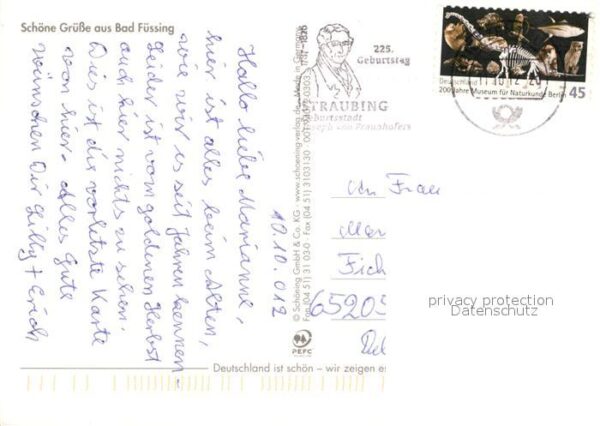 Schöne Grüße aus Bad Füssing
10.10.012
Hallo liebe Marianne,
hier ist alles beim Alten,
wie wir es seit Jahren kennen -
Leider ist vom goldenen Herbst
auch hier nichts zu sehen.
Dies ist die vorletzte Karte
von hier - Alles Gute
wünschen Dir Lilly + Erich
© Schöning GmbH & Co. KG - www.schoening-verlag.de - Made in Germany
Fax (04 51) 3 10 31 30
PEFC
Deutschland ist schön – wir zeigen es
1787-1826
225.
Geburtstag
STRAUBING
Geburtsstadt
Joseph von Fraunhofers
Deutschland
200 Jahre Museum für Naturkunde Berlin
45
An Frau
Fich
65205
privacy protection
Datenschutz